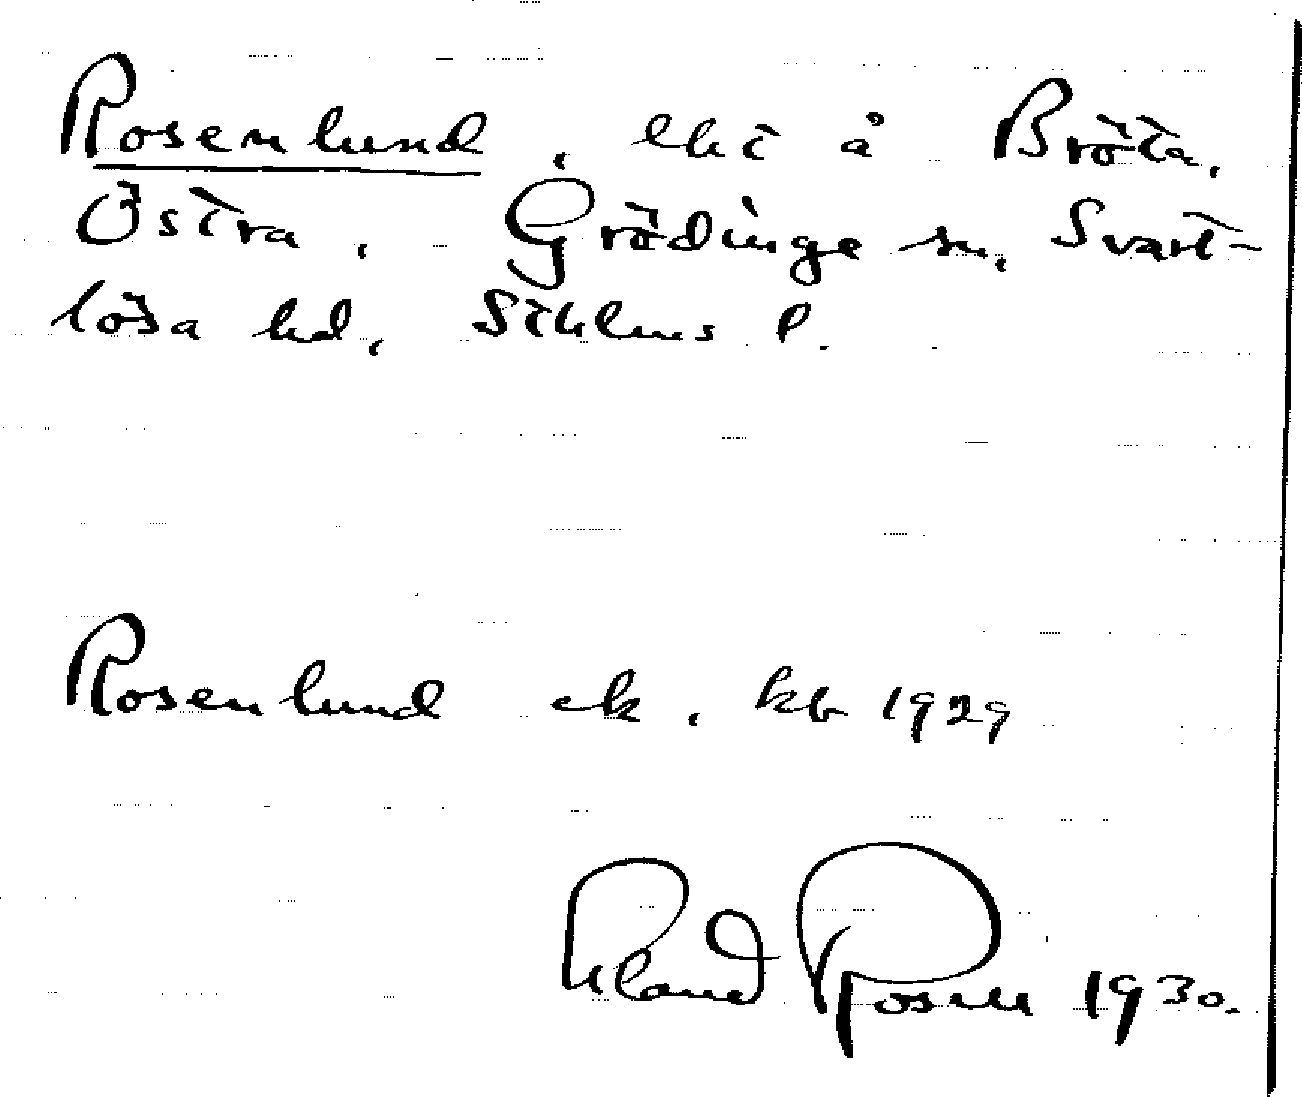 Rosenlund, lht å Bröta,
Östra, Grödinge sn, Svart-
lösa hd, Sthlms l.
Rosenlund ek, kb 1929
Rosell 1930.